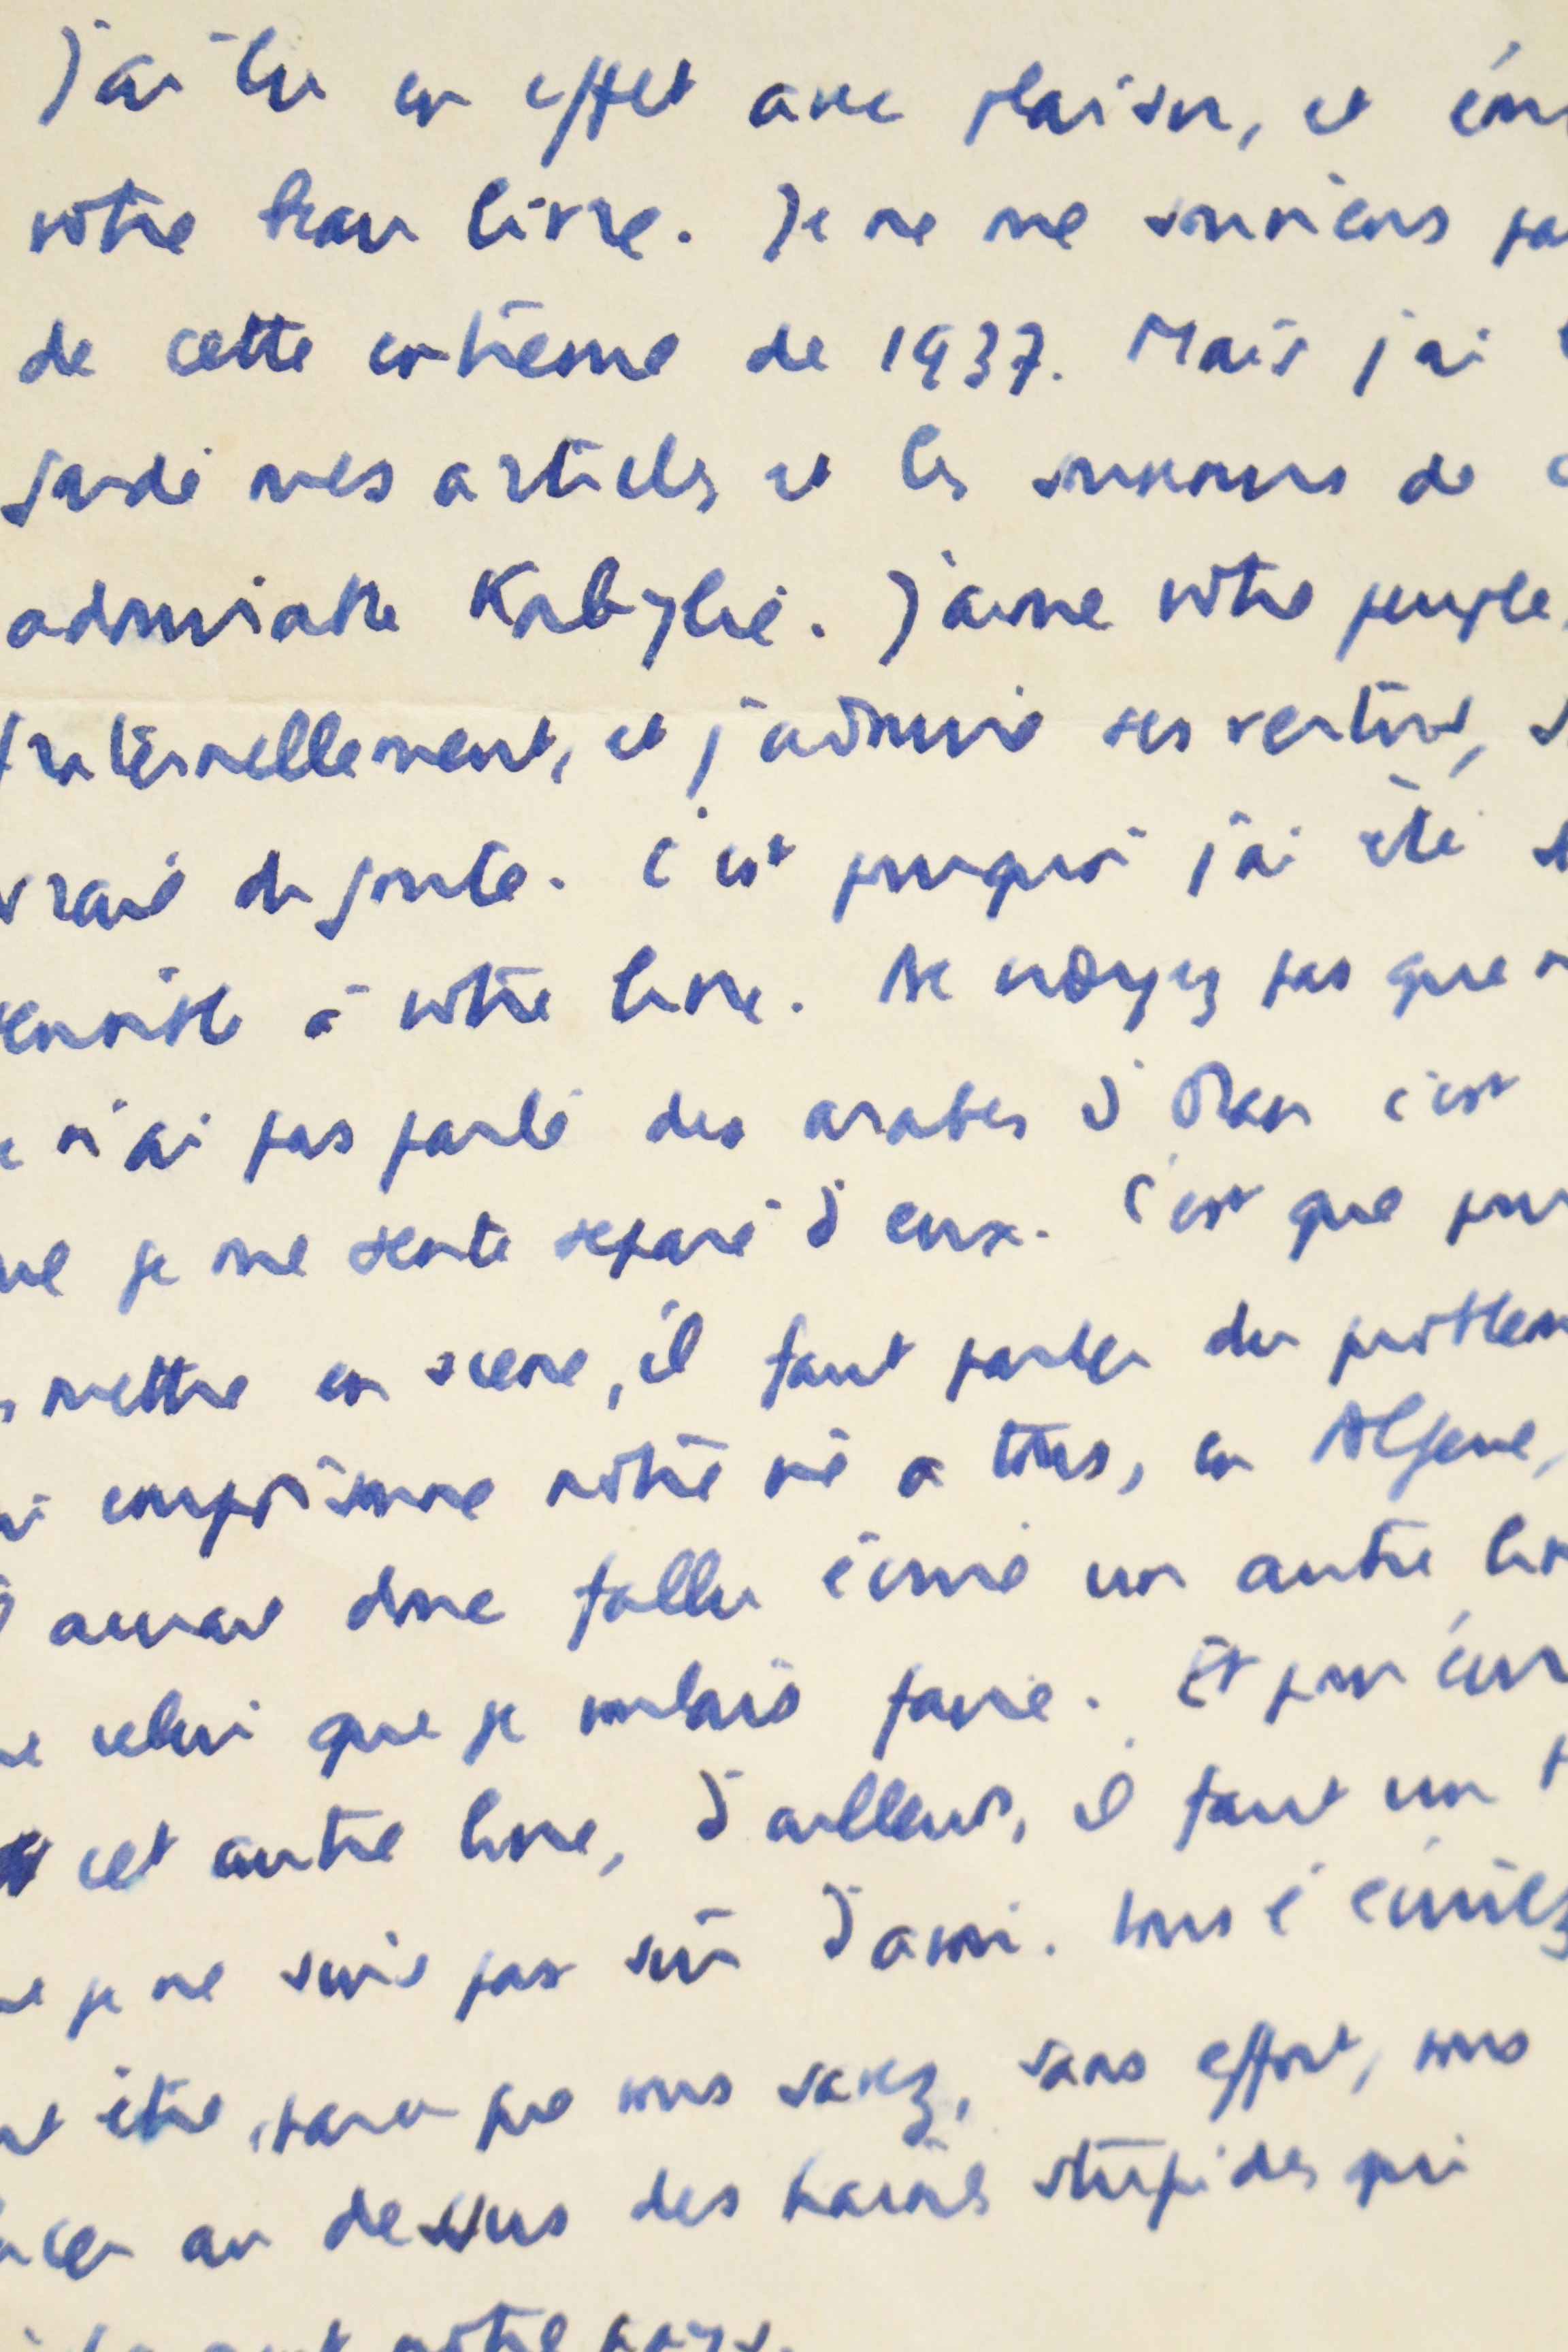 J'ai lu en effet avec plaisir, et
votre beau livre. Je ne me souviens
de cette entrevue de 1937. Mais j'ai
gardé mes articles et les souvenirs de
admirable Kabylie. J'aime votre peuple,
fraternellement, et j'admire ses vertus,
vraie du
C'est pourquoi j'ai été
sensible à votre livre. Ne croyez pas que
n'ai pas parlé des arabes d'Oran c'est
je me sente séparé d'eux. C'est que
mettre en scène, il faut parler du
empoisonne notre vie à tous, en Algérie,
aurait donc fallu écrire un autre
celui que je voulais faire. Et pour
cet autre livre, d'ailleurs, il faut un
je ne suis pas sûr d'avoir. Vous l'écrirez
être, parce que vous savez, sans effort, vous
au dessus des haines stupides qui
notre pays.